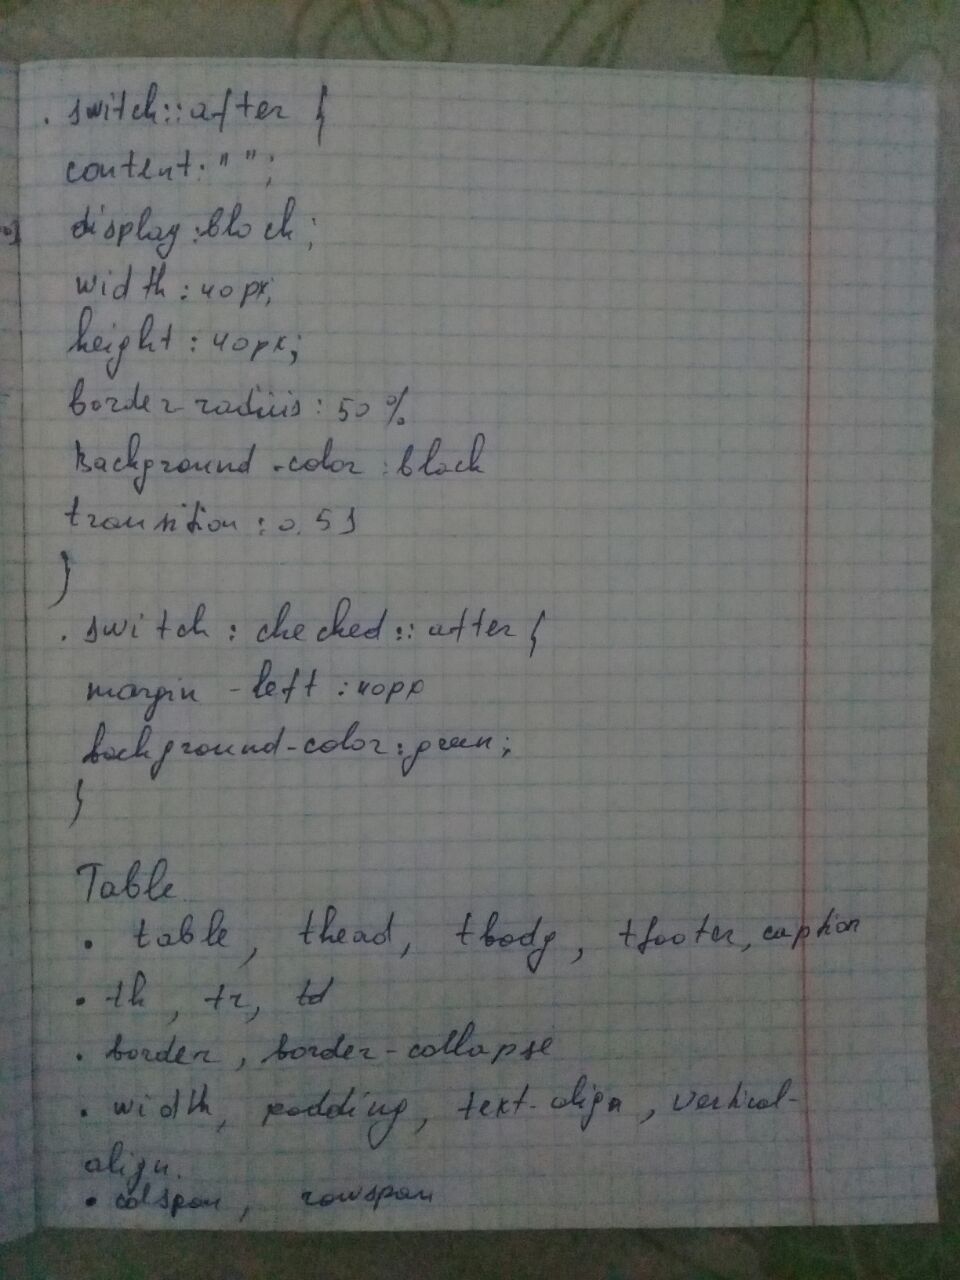 . switch::after {
content: " ";
display:block;
width:40px;
height:40px;
border-radius:50%
Background-color:black
transition:0.5s
}
.switch:checked::after{
margin-left:40px
background-color:green;
}
Table
• table, thead, tbody, tfooter, caption
• th, tr, td
• border, border-collapse
• width, padding, text-align, vertical-
align.
• colspan, rowspan